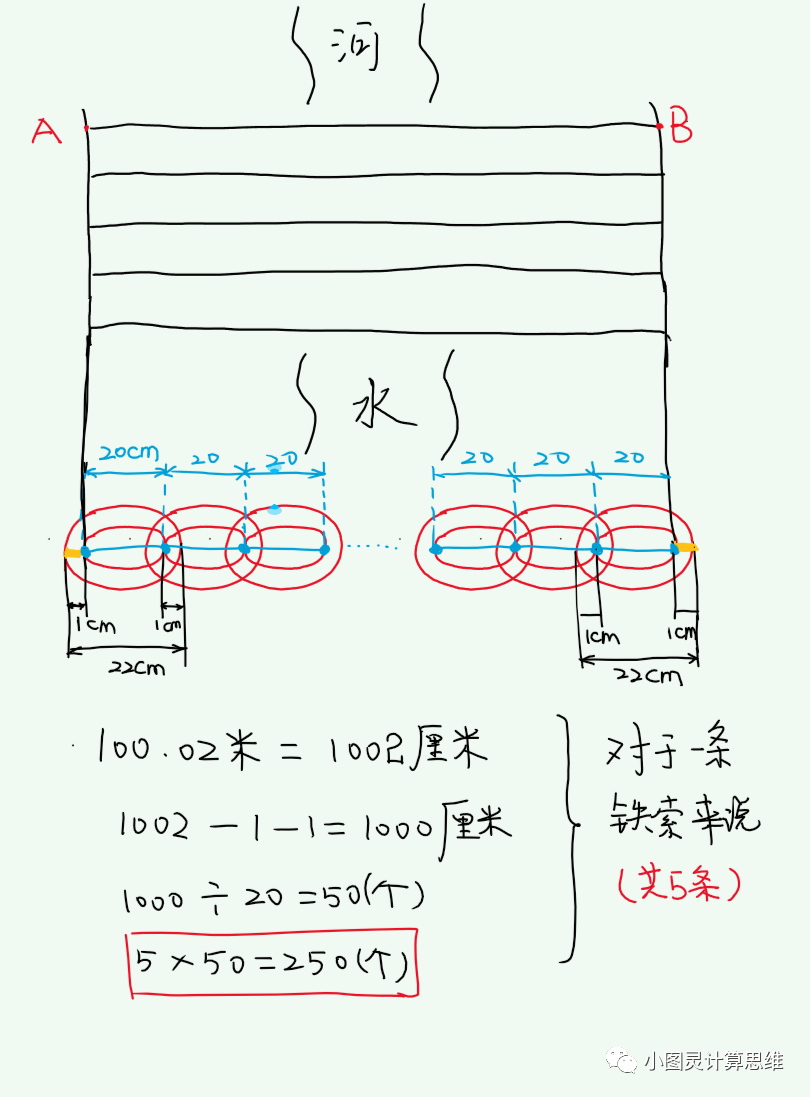 河
A
B
水
20cm 20 20 20 20 20
1cm 1cm 1cm 1cm
22cm 22cm
100.02米 = 1002厘米
1002 - 1 - 1 = 1000厘米
1000 ÷ 20 = 50(个)
5 × 50 = 250(个)
对于一条
铁索来说
(共5条)
小图灵计算思维